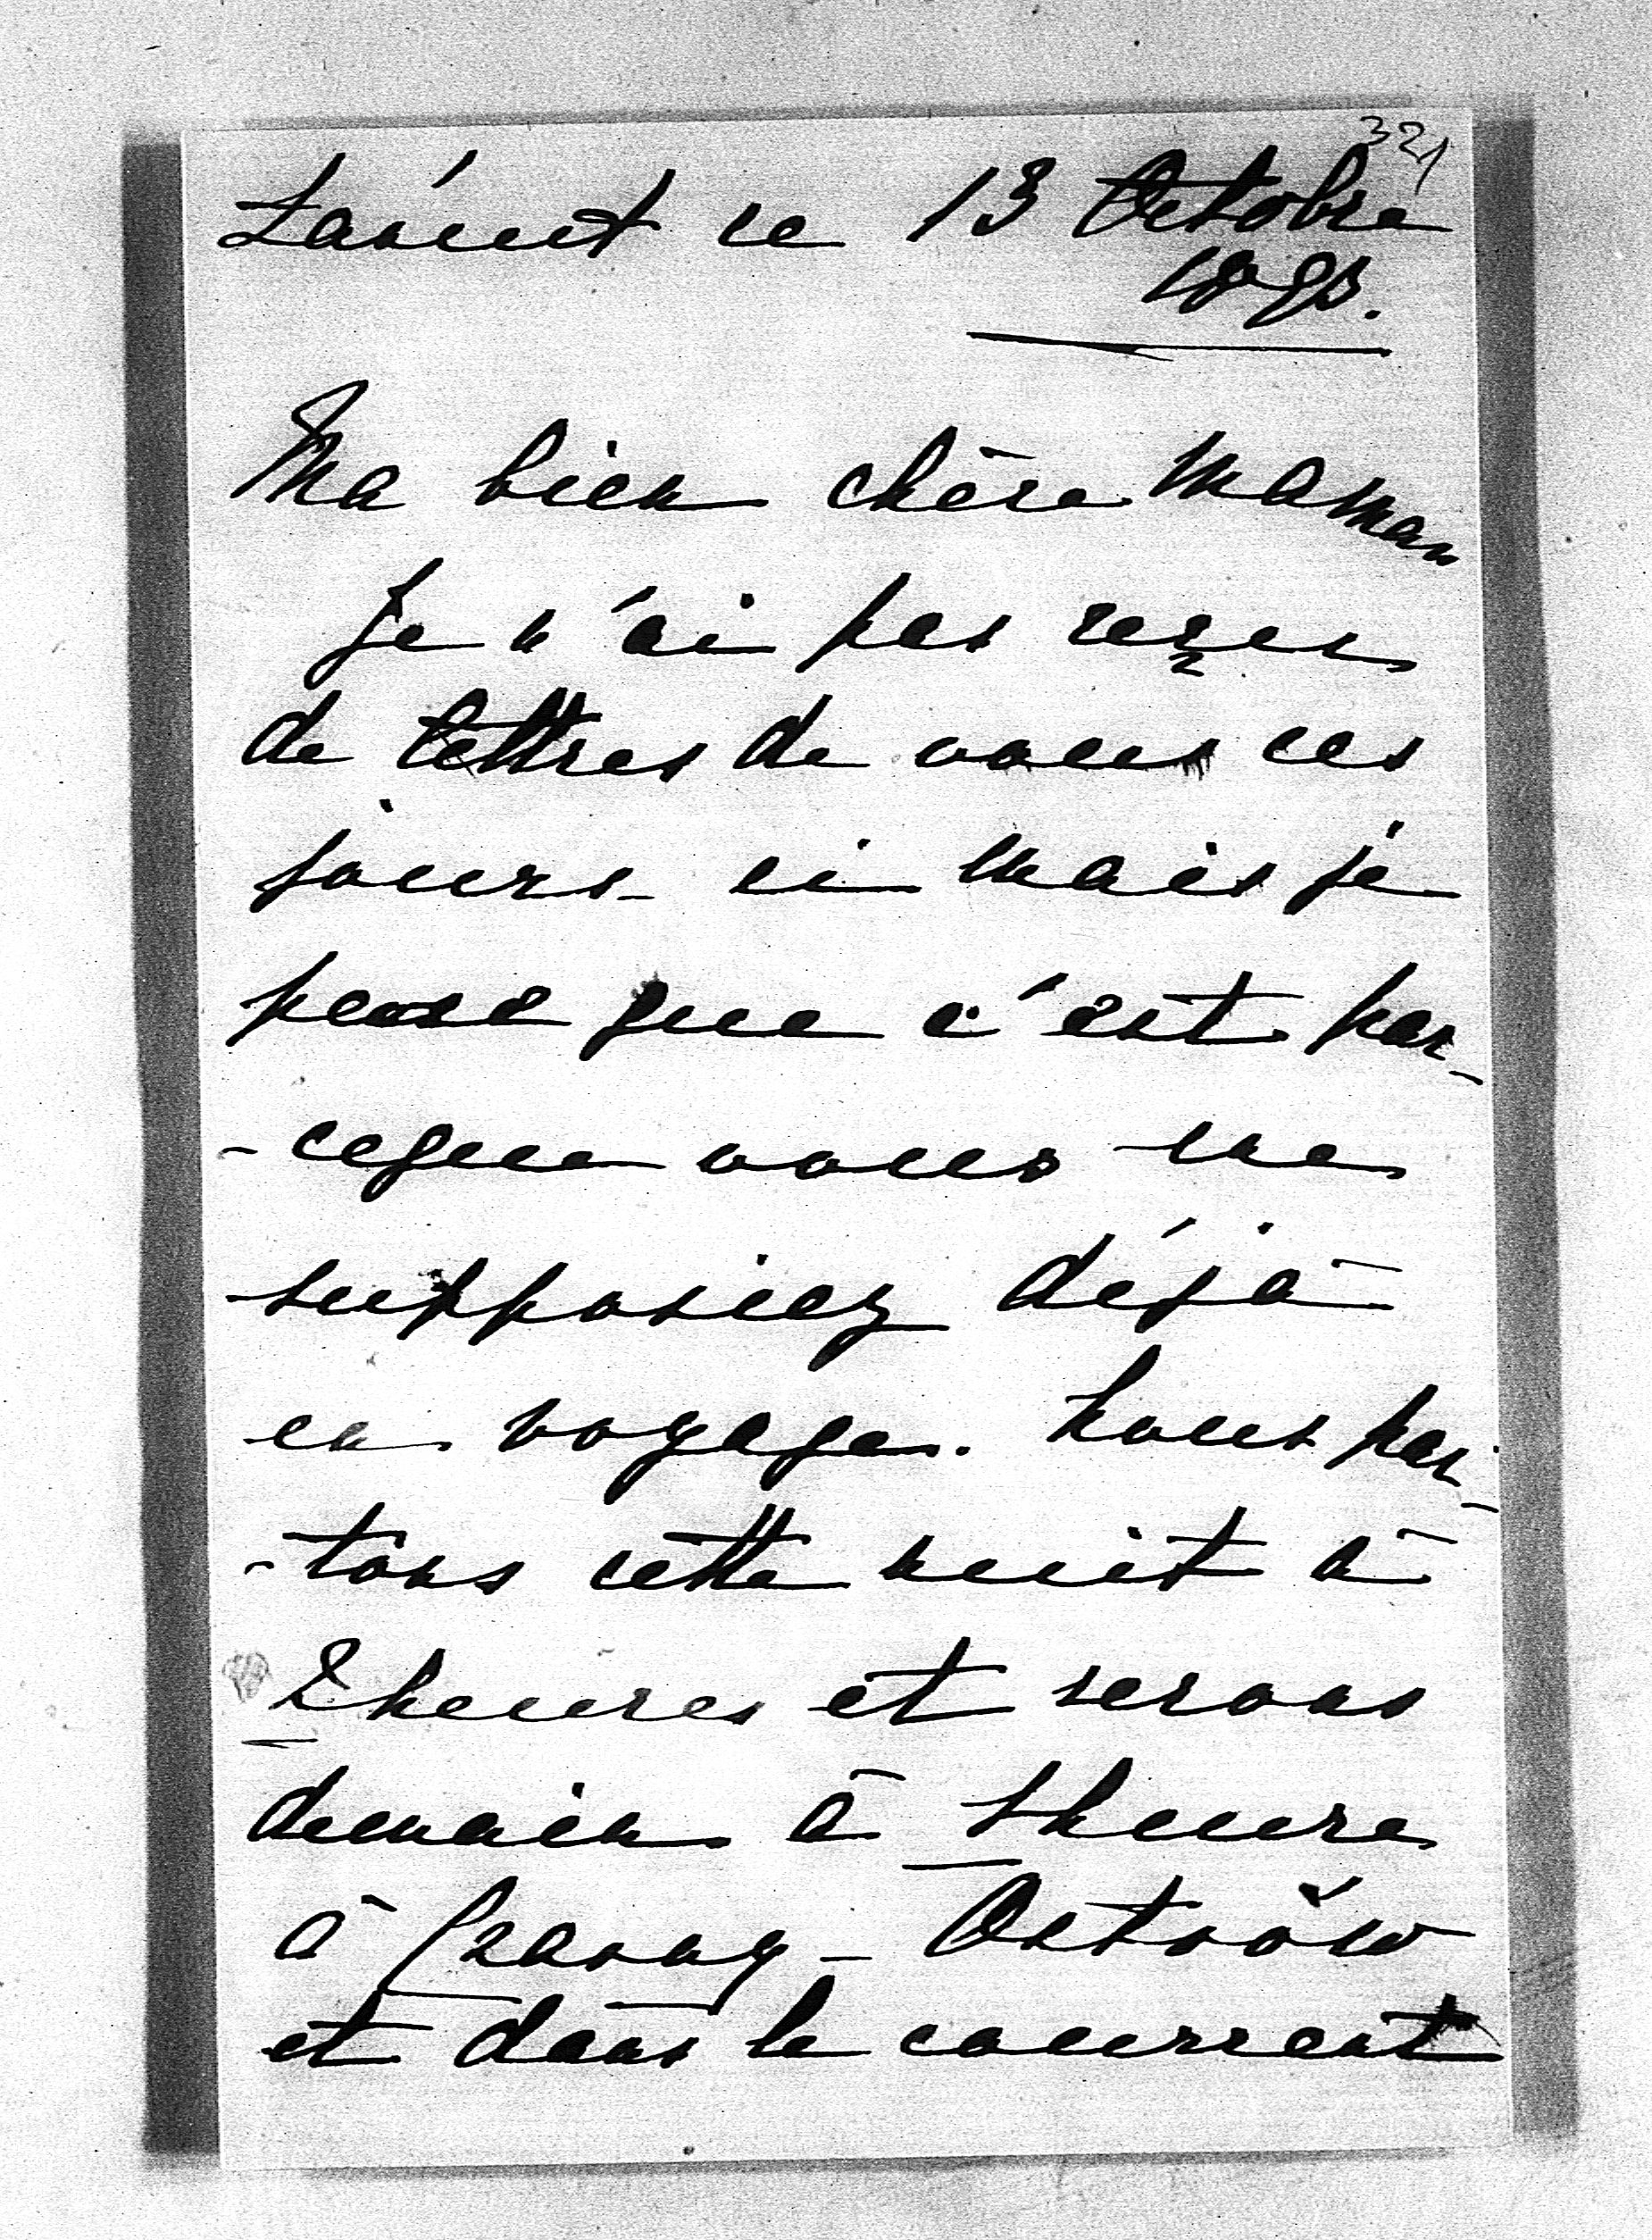 321
Łańcut ce 13 Octobre
1898.
Ma bien chère Maman
Je n'ai pas reçu
de lettres de vous ces
jours-ci mais je
pense que c'est par-
-ceque vous me
supposiez déjà
en voyage. Nous par-
-tons cette nuit à
2 heures et serons
demain à 1 heure
à Czarny-Ostrów
et dans le courrent